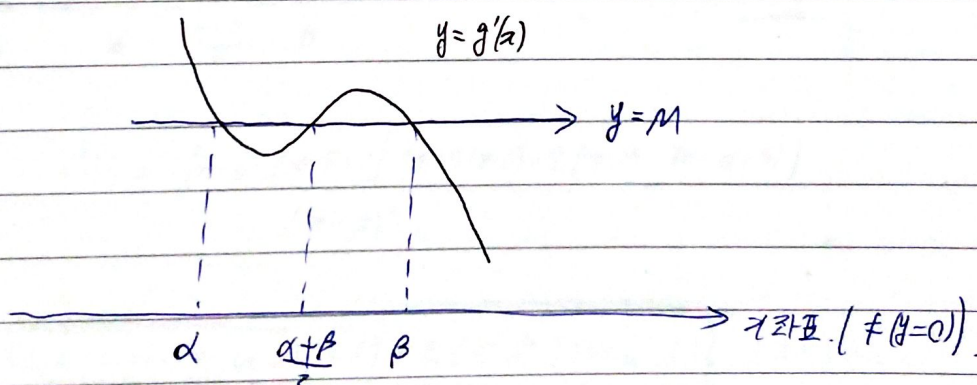 y = g'(x)
y = M
α
α+β
2
β
x좌표. ( ≠ (y=0) )